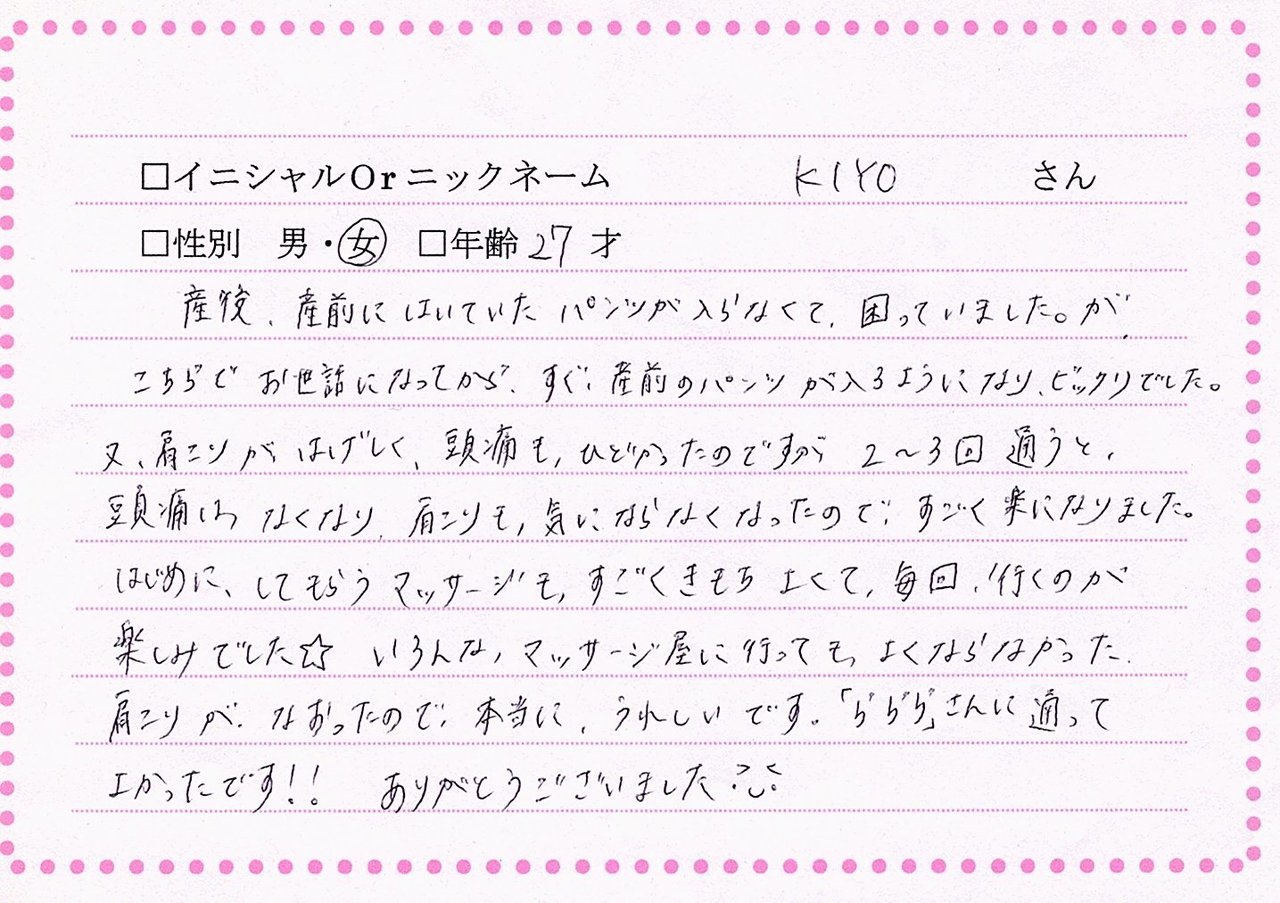 □イニシャルOrニックネーム KIYO さん
□性別 男・女 □年齢 27 才
産後、産前にはいていたパンツが入らなくて、困っていました。が、
こちらでお世話になってから、すぐ、産前のパンツが入るようになり、ビックリでした。
又、肩こりがはげしく、頭痛も、ひどかったのですが 2〜3回通うと、
頭痛は、なくなり、肩こりも、気にならなくなったので、すごく楽になりました。
はじめに、してもらうマッサージも、すごくきもちよくて、毎回、行くのが
楽しみでした☆ いろんな、マッサージ屋に行っても、よくならなかった、
肩こりが、なおったので、本当に、うれしいです。「ららら」さんに通って
よかったです!! ありがとうございました